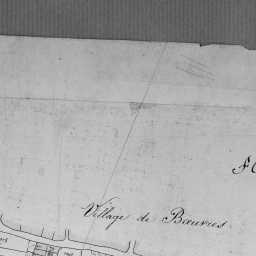 Village de Bœuvres